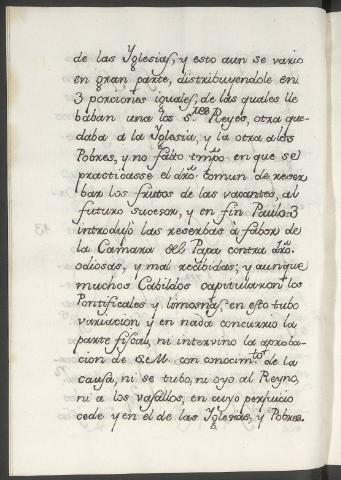 de las Yglesias, y esto aun se vario
en gran parte, distribuyendole en
3 porciones iguales, de las quales lle
baban una los s.res Reyes, otra que
daba a la Yglesia, y la otra a los
Pobres, y no falto tmpo en que se
practicasse el dro. comun de reser
bar los frutos de las vacantes, al
futuro sucesor, y en fin Paulo 3
introdujo las reserbas à fabor de
la Camara del Papa contra dro.
odiosas, y mal recibidas; y aunque
muchos Cabildos capitularon los
Pontificales y limosnas, en esto tubo
variacion y en nada concurrio la
parte fiscal, ni intervino la aproba-
cion de S.M. con conocim.to de la
causa, ni se tubo, ni oyo al Reyno,
ni a los vasallos, en cuyo perjuicio
cede y en el de las Yglesias, y Pobres.
13